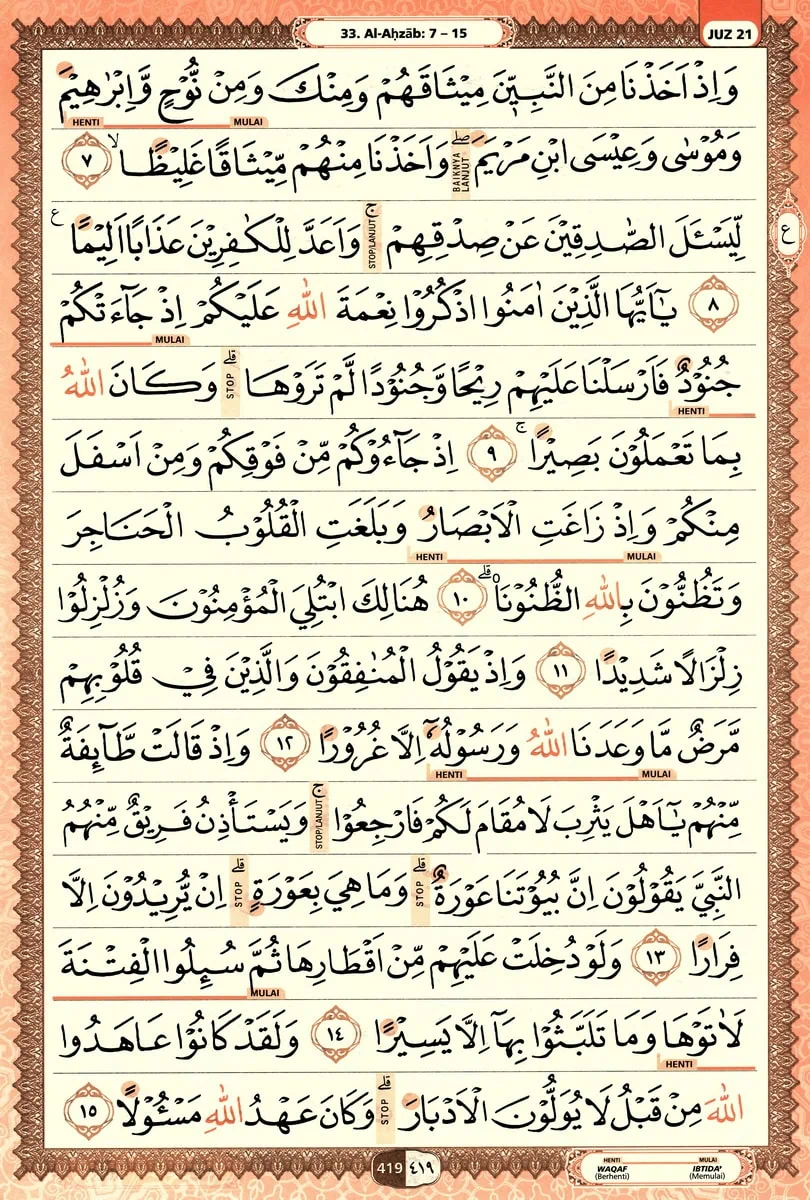 33. Al-Aḥzāb: 7 – 15
JUZ 21
وَاِذْ اَخَذْنَا مِنَ النَّبِيّٖنَ مِيْثَاقَهُمْ وَمِنْكَ وَمِنْ نُّوْحٍ وَّاِبْرٰهِيْمَ
HENTI MULAI
وَمُوْسٰى وَعِيْسَى ابْنِ مَرْيَمَ ۖ وَاَخَذْنَا مِنْهُمْ مِّيْثَاقًا غَلِيْظًاۙ ٧
BAIKNYA LANJUT
لِّيَسْـَٔلَ الصّٰدِقِيْنَ عَنْ صِدْقِهِمْ ۚ وَاَعَدَّ لِلْكٰفِرِيْنَ عَذَابًا اَلِيْمًا ࣖ
STOP/LANJUT
ع
٨ يٰٓاَيُّهَا الَّذِيْنَ اٰمَنُوا اذْكُرُوْا نِعْمَةَ اللّٰهِ عَلَيْكُمْ اِذْ جَاۤءَتْكُمْ
MULAI
جُنُوْدٌ فَاَرْسَلْنَا عَلَيْهِمْ رِيْحًا وَّجُنُوْدًا لَّمْ تَرَوْهَا ۗ وَكَانَ اللّٰهُ
STOP
HENTI
بِمَا تَعْمَلُوْنَ بَصِيْرًاۚ ٩ اِذْ جَاۤءُوْكُمْ مِّنْ فَوْقِكُمْ وَمِنْ اَسْفَلَ
مِنْكُمْ وَاِذْ زَاغَتِ الْاَبْصَارُ وَبَلَغَتِ الْقُلُوْبُ الْحَنَاجِرَ
HENTI MULAI
وَتَظُنُّوْنَ بِاللّٰهِ الظُّنُوْنَا۠ ۗ ١٠ هُنَالِكَ ابْتُلِيَ الْمُؤْمِنُوْنَ وَزُلْزِلُوْا
زِلْزَالًا شَدِيْدًا ١١ وَاِذْ يَقُوْلُ الْمُنٰفِقُوْنَ وَالَّذِيْنَ فِيْ قُلُوْبِهِمْ
مَّرَضٌ مَّا وَعَدَنَا اللّٰهُ وَرَسُوْلُهٗٓ اِلَّا غُرُوْرًا ١٢ وَاِذْ قَالَتْ طَّاۤىِٕفَةٌ
HENTI MULAI
مِّنْهُمْ يٰٓاَهْلَ يَثْرِبَ لَا مُقَامَ لَكُمْ فَارْجِعُوْا ۚ وَيَسْتَأْذِنُ فَرِيْقٌ مِّنْهُمُ
STOP/LANJUT
النَّبِيَّ يَقُوْلُوْنَ اِنَّ بُيُوْتَنَا عَوْرَةٌ ۗ وَمَا هِيَ بِعَوْرَةٍ ۗ اِنْ يُّرِيْدُوْنَ اِلَّا
STOP STOP
فِرَارًا ١٣ وَلَوْ دُخِلَتْ عَلَيْهِمْ مِّنْ اَقْطَارِهَا ثُمَّ سُىِٕلُوا الْفِتْنَةَ
MULAI
لَاٰتَوْهَا وَمَا تَلَبَّثُوْا بِهَآ اِلَّا يَسِيْرًا ١٤ وَلَقَدْ كَانُوْا عَاهَدُوا
HENTI
اللّٰهَ مِنْ قَبْلُ لَا يُوَلُّوْنَ الْاَدْبَارَ ۗ وَكَانَ عَهْدُ اللّٰهِ مَسْـُٔوْلًا ١٥
STOP
419 ٤١٩
HENTI MULAI
WAQAF IBTIDA'
(Berhenti) (Memulai)